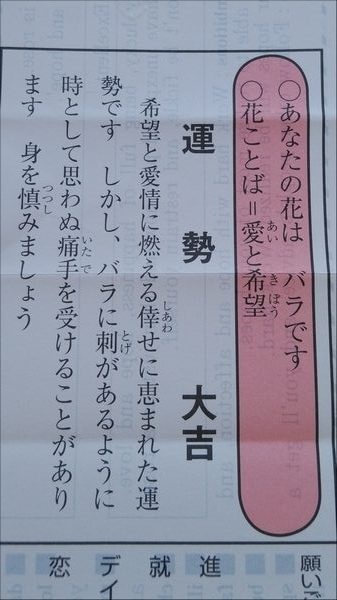 ○あなたの花は　バラです
○花ことば＝愛と希望
あい
きぼう
運勢 大吉
希望と愛情に燃える倖せに恵まれた運
しあわ
勢です　しかし、バラに刺があるように
とげ
時として思わぬ痛手を受けることがあり
いたで
ます　身を慎みましょう
つつし
願い
進
就
デイ
恋